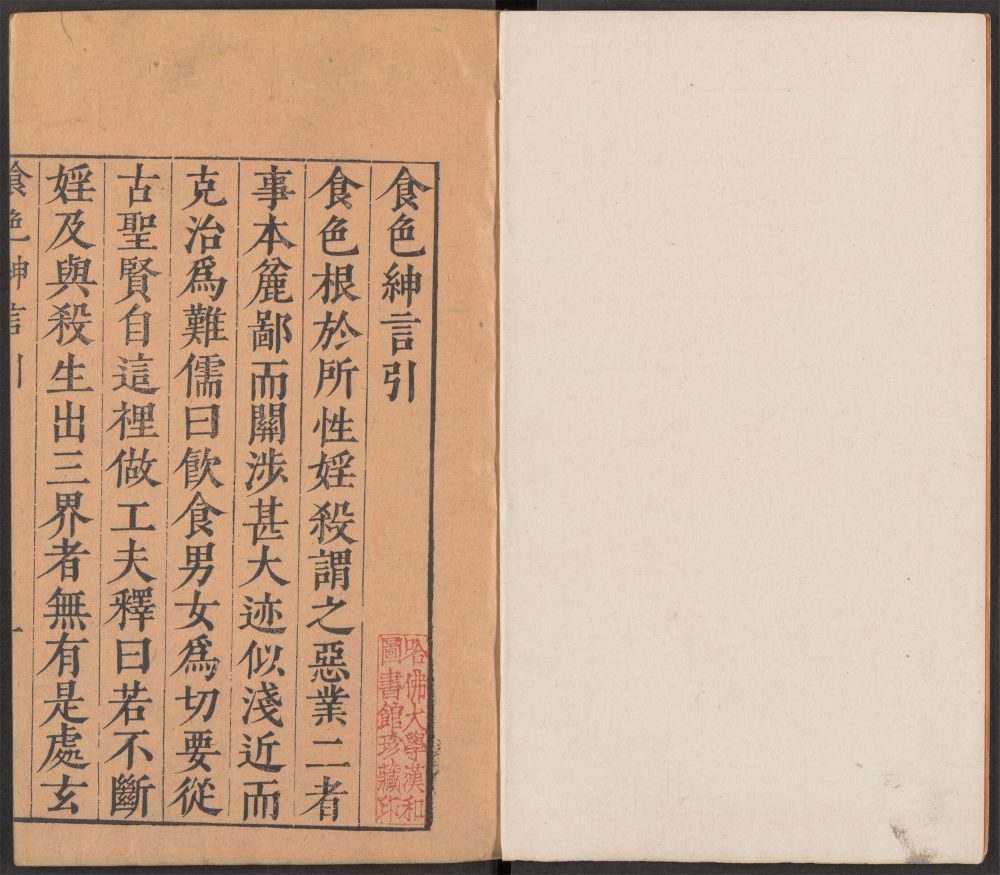 食色紳言引
食色根於所性婬殺謂之惡業二者
事本麄鄙而關涉甚大迹似淺近而
克治爲難儒曰飮食男女爲切要從
古聖賢自這裡做工夫釋曰若不斷
婬及與殺生出三界者無有是處玄
食色紳言引
一
哈佛大學漢和
圖書館珍藏印